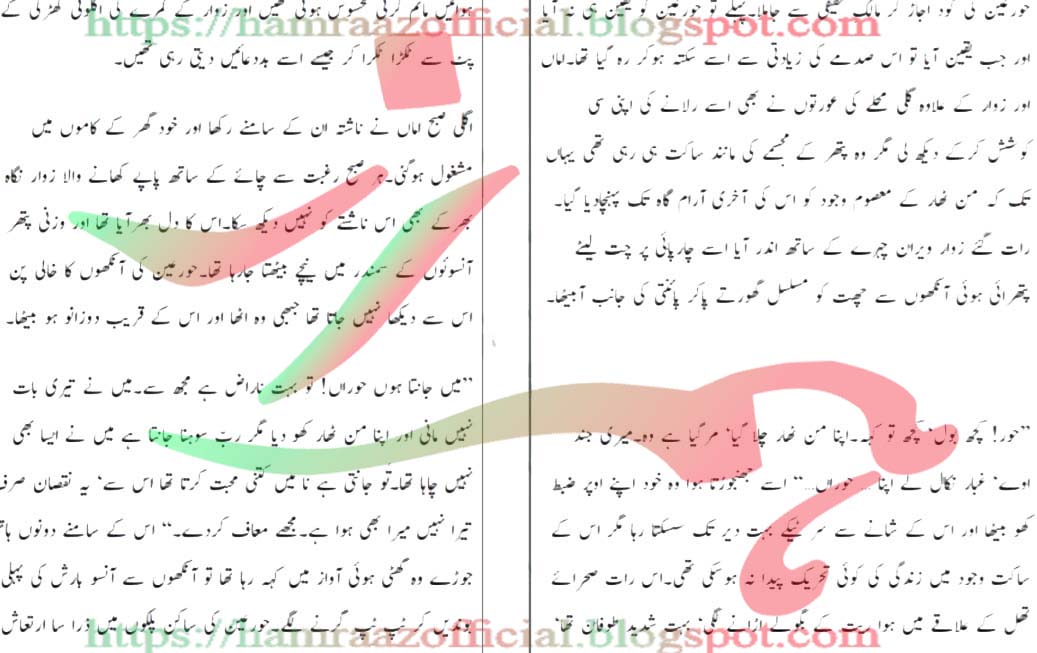 حورعین کی گود اجاڑ کر مالک حقیقی سے جاملا۔ پہلے تو حورعین کو یقین ہی نہ آیا
اور جب یقین آیا تو اس صدمے کی زیادتی سے اسے سکتہ ہوکر رہ گیا تھا۔اماں
اور زوار کے علاوہ گلی محلے کی عورتوں نے بھی اسے رلانے کی اپنی سی
کوشش کرکے دیکھ لی مگر وہ پتھر کے مجسمے کی مانند ساکت ہی رہی تھی یہاں
تک کہ من ٹھار کے معصوم وجود کو اس کی آخری آرام گاہ تک پہنچادیا گیا۔
رات گئے زوار ویران چہرے کے ساتھ اندر آیا اسے چارپائی پر چت لیٹے
پتھرائی ہوئی آنکھوں سے چھت کو مسلسل گھورتے پاکر پائنتی کی جانب آبیٹھا۔
”حور! کچھ بول‘ کچھ تو کہہ۔۔اپنا من ٹھار چلا گیا‘ مرگیا ہے وہ۔میری جند
اوے‘ غبار نکال لے اپنا... حوراں...“ اسے جھنجوڑتا ہوا وہ خود اپنے اوپر ضبط
کھو بیٹھا اور اس کے شانے سے سر ٹیکے بہت دیر تک سسکتا رہا مگر اس کے
ساکت وجود میں زندگی کی کوئی تحریک پیدا نہ ہوسکی تھی۔اس رات صحرائے
تھل کے علاقے میں ہوا ریت کے بگولے اڑانے لگی‘ بہت شدید طوفان تھا‘
ہوائیں ماتم کرتی محسوس ہوئی تھیں اور زوار کے کمرے کی اکلوتی کھڑکی کے
پٹ سے ٹکرا ٹکرا کر جیسے اسے بددعائیں دیتی رہی تھیں۔
اگلی صبح اماں نے ناشتہ ان کے سامنے رکھا اور خود گھر کے کاموں میں
مشغول ہوگئی۔ہر صبح رغبت سے چائے کے ساتھ پاپے کھانے والا زوار نگاہ
بھرکے بھی اس ناشتے کو نہیں دیکھ سکا۔اس کا دل بھر آیا تھا اور وزنی پتھر
آنسوئوں کے سمندر میں نیچے بیٹھتا جارہا تھا۔حورعین کی آنکھوں کا خالی پن
اس سے دیکھا نہیں جاتا تھا جبھی وہ اٹھا اور اس کے قریب دوزانو ہو بیٹھا۔
”میں جانتا ہوں حوراں! تو بہت ناراض ہے مجھ سے۔میں نے تیری بات
نہیں مانی اور اپنا من ٹھار کھو دیا مگر ربّ سوہنا جانتا ہے میں نے ایسا بھی
نہیں چاہا تھا۔تُو جانتی ہے نا میں کتنی محبت کرتا تھا اس سے‘ یہ نقصان صرف
تیرا نہیں میرا بھی ہوا ہے۔مجھے معاف کردے۔“ اس کے سامنے دونوں ہاتھ
جوڑے وہ گھٹی ہوئی آواز میں کہہ رہا تھا تو آنکھوں سے آنسو بارش کی پہلی
بوندیں کر ٹپ ٹپ گرنے لگے۔حورعین کی ساکن پلکوں میں ذرا سا ارتعاش
https://hamraazofficial.blogspot.com
https://hamraazofficial.blogspot.com